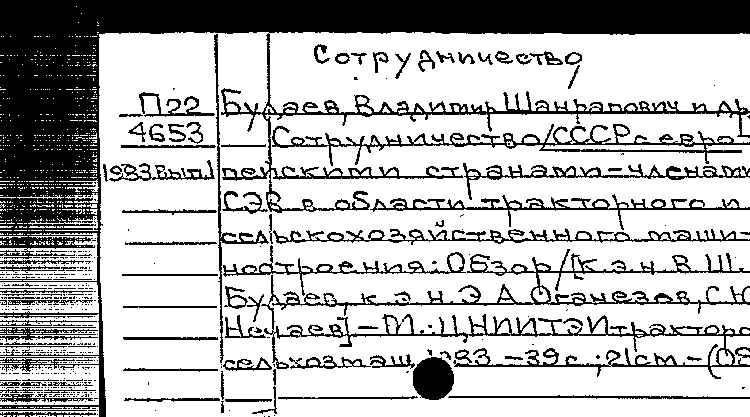 Сотрудничество
П22 Будаев, Владимир Шанрапович и др
4653 Сотрудничество/СССР с евро-
1983.Вып.1 пейскими странами-членами
СЭВ в области тракторного и
сельскохозяйственного маши-
ностроения: Обзор/[К.э.н. В.Ш.
Будаев, к.э.н. Э.А. Оганезов, С.Ю
Нечаев]-М.: ЦНИИТЭИтракторо
сельхозмаш, 1983.-39с.; 21см.-(ОБ